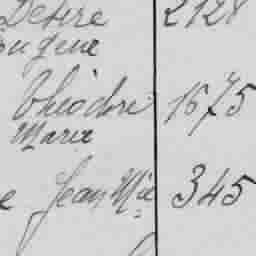 Désiré 2128
Eugène
Théodore 1675
Marie
e Jean Nie 345